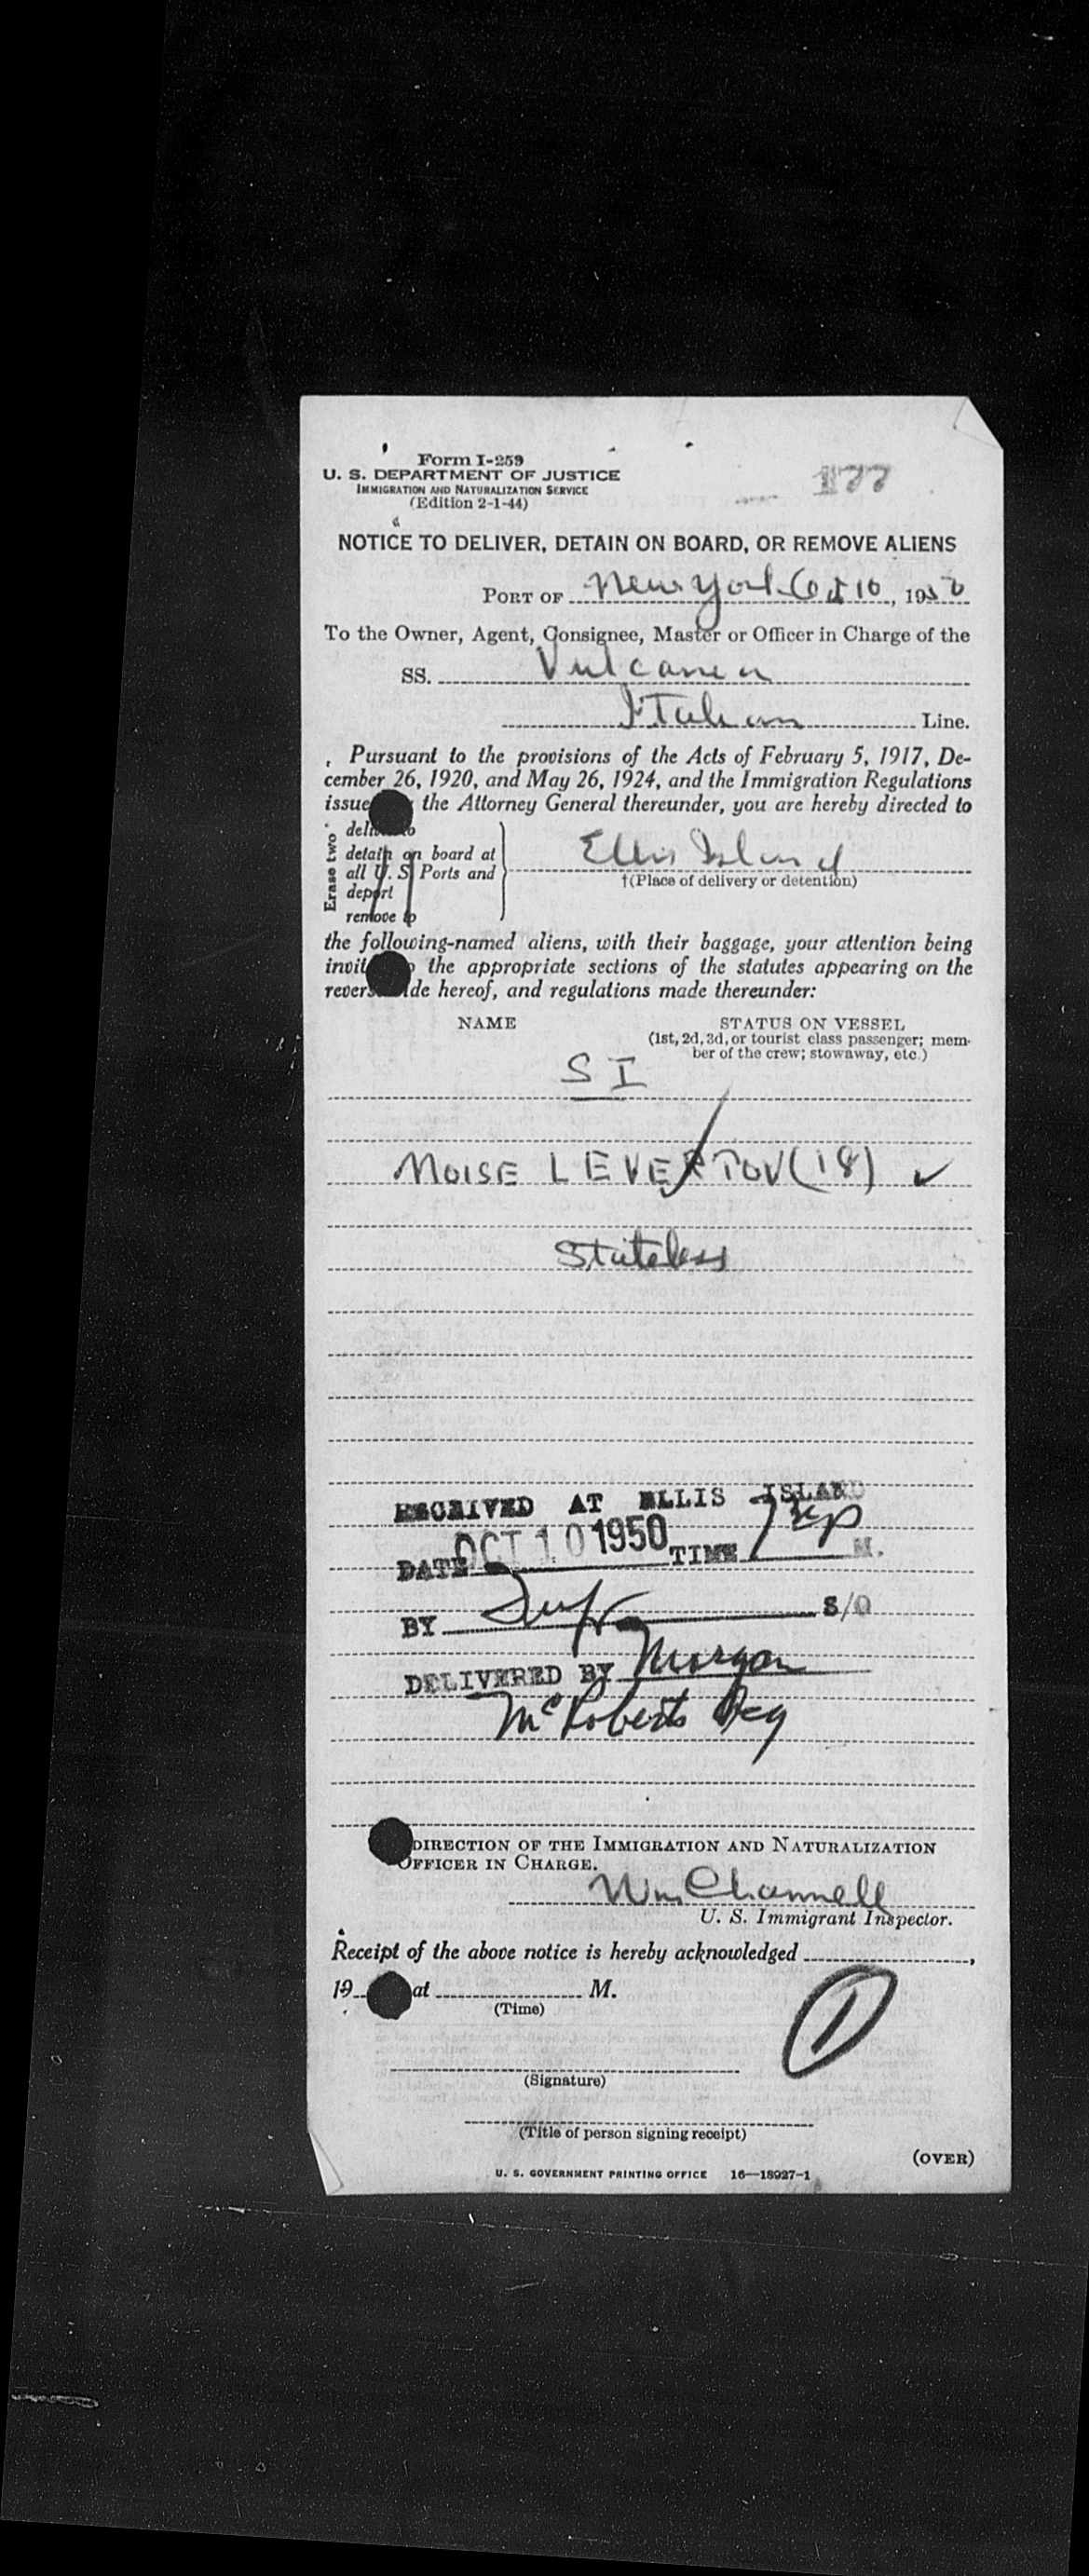 Form I-259
U. S. DEPARTMENT OF JUSTICE
IMMIGRATION AND NATURALIZATION SERVICE
(Edition 2-1-44)
177
NOTICE TO DELIVER, DETAIN ON BOARD, OR REMOVE ALIENS
PORT OF New York Oct 10, 1950
To the Owner, Agent, Consignee, Master or Officer in Charge of the
SS. Vulcania
Italian Line.
Pursuant to the provisions of the Acts of February 5, 1917, De-
cember 26, 1920, and May 26, 1924, and the Immigration Regulations
issue the Attorney General thereunder, you are hereby directed to
Erase two
deliver to
detain on board at
all U. S. Ports and
deport
remove to
Ellis Island
†(Place of delivery or detention)
the following-named aliens, with their baggage, your attention being
invit the appropriate sections of the statutes appearing on the
revers ide hereof, and regulations made thereunder:
NAME STATUS ON VESSEL
(1st, 2d, 3d, or tourist class passenger; mem-
ber of the crew; stowaway, etc.)
S I
MOISE LEVERTOV (18) ✓
Stateless
RECEIVED AT ELLIS ISLAND
DATE OCT 10 1950 TIME M.
BY S/O
DELIVERED BY Morgan
McRoberts Deg
DIRECTION OF THE IMMIGRATION AND NATURALIZATION
OFFICER IN CHARGE.
Wm Channell
U. S. Immigrant Inspector.
Receipt of the above notice is hereby acknowledged ,
19 at M.
(Time)
1
(Signature)
(Title of person signing receipt)
(OVER)
U. S. GOVERNMENT PRINTING OFFICE 16—18927-1